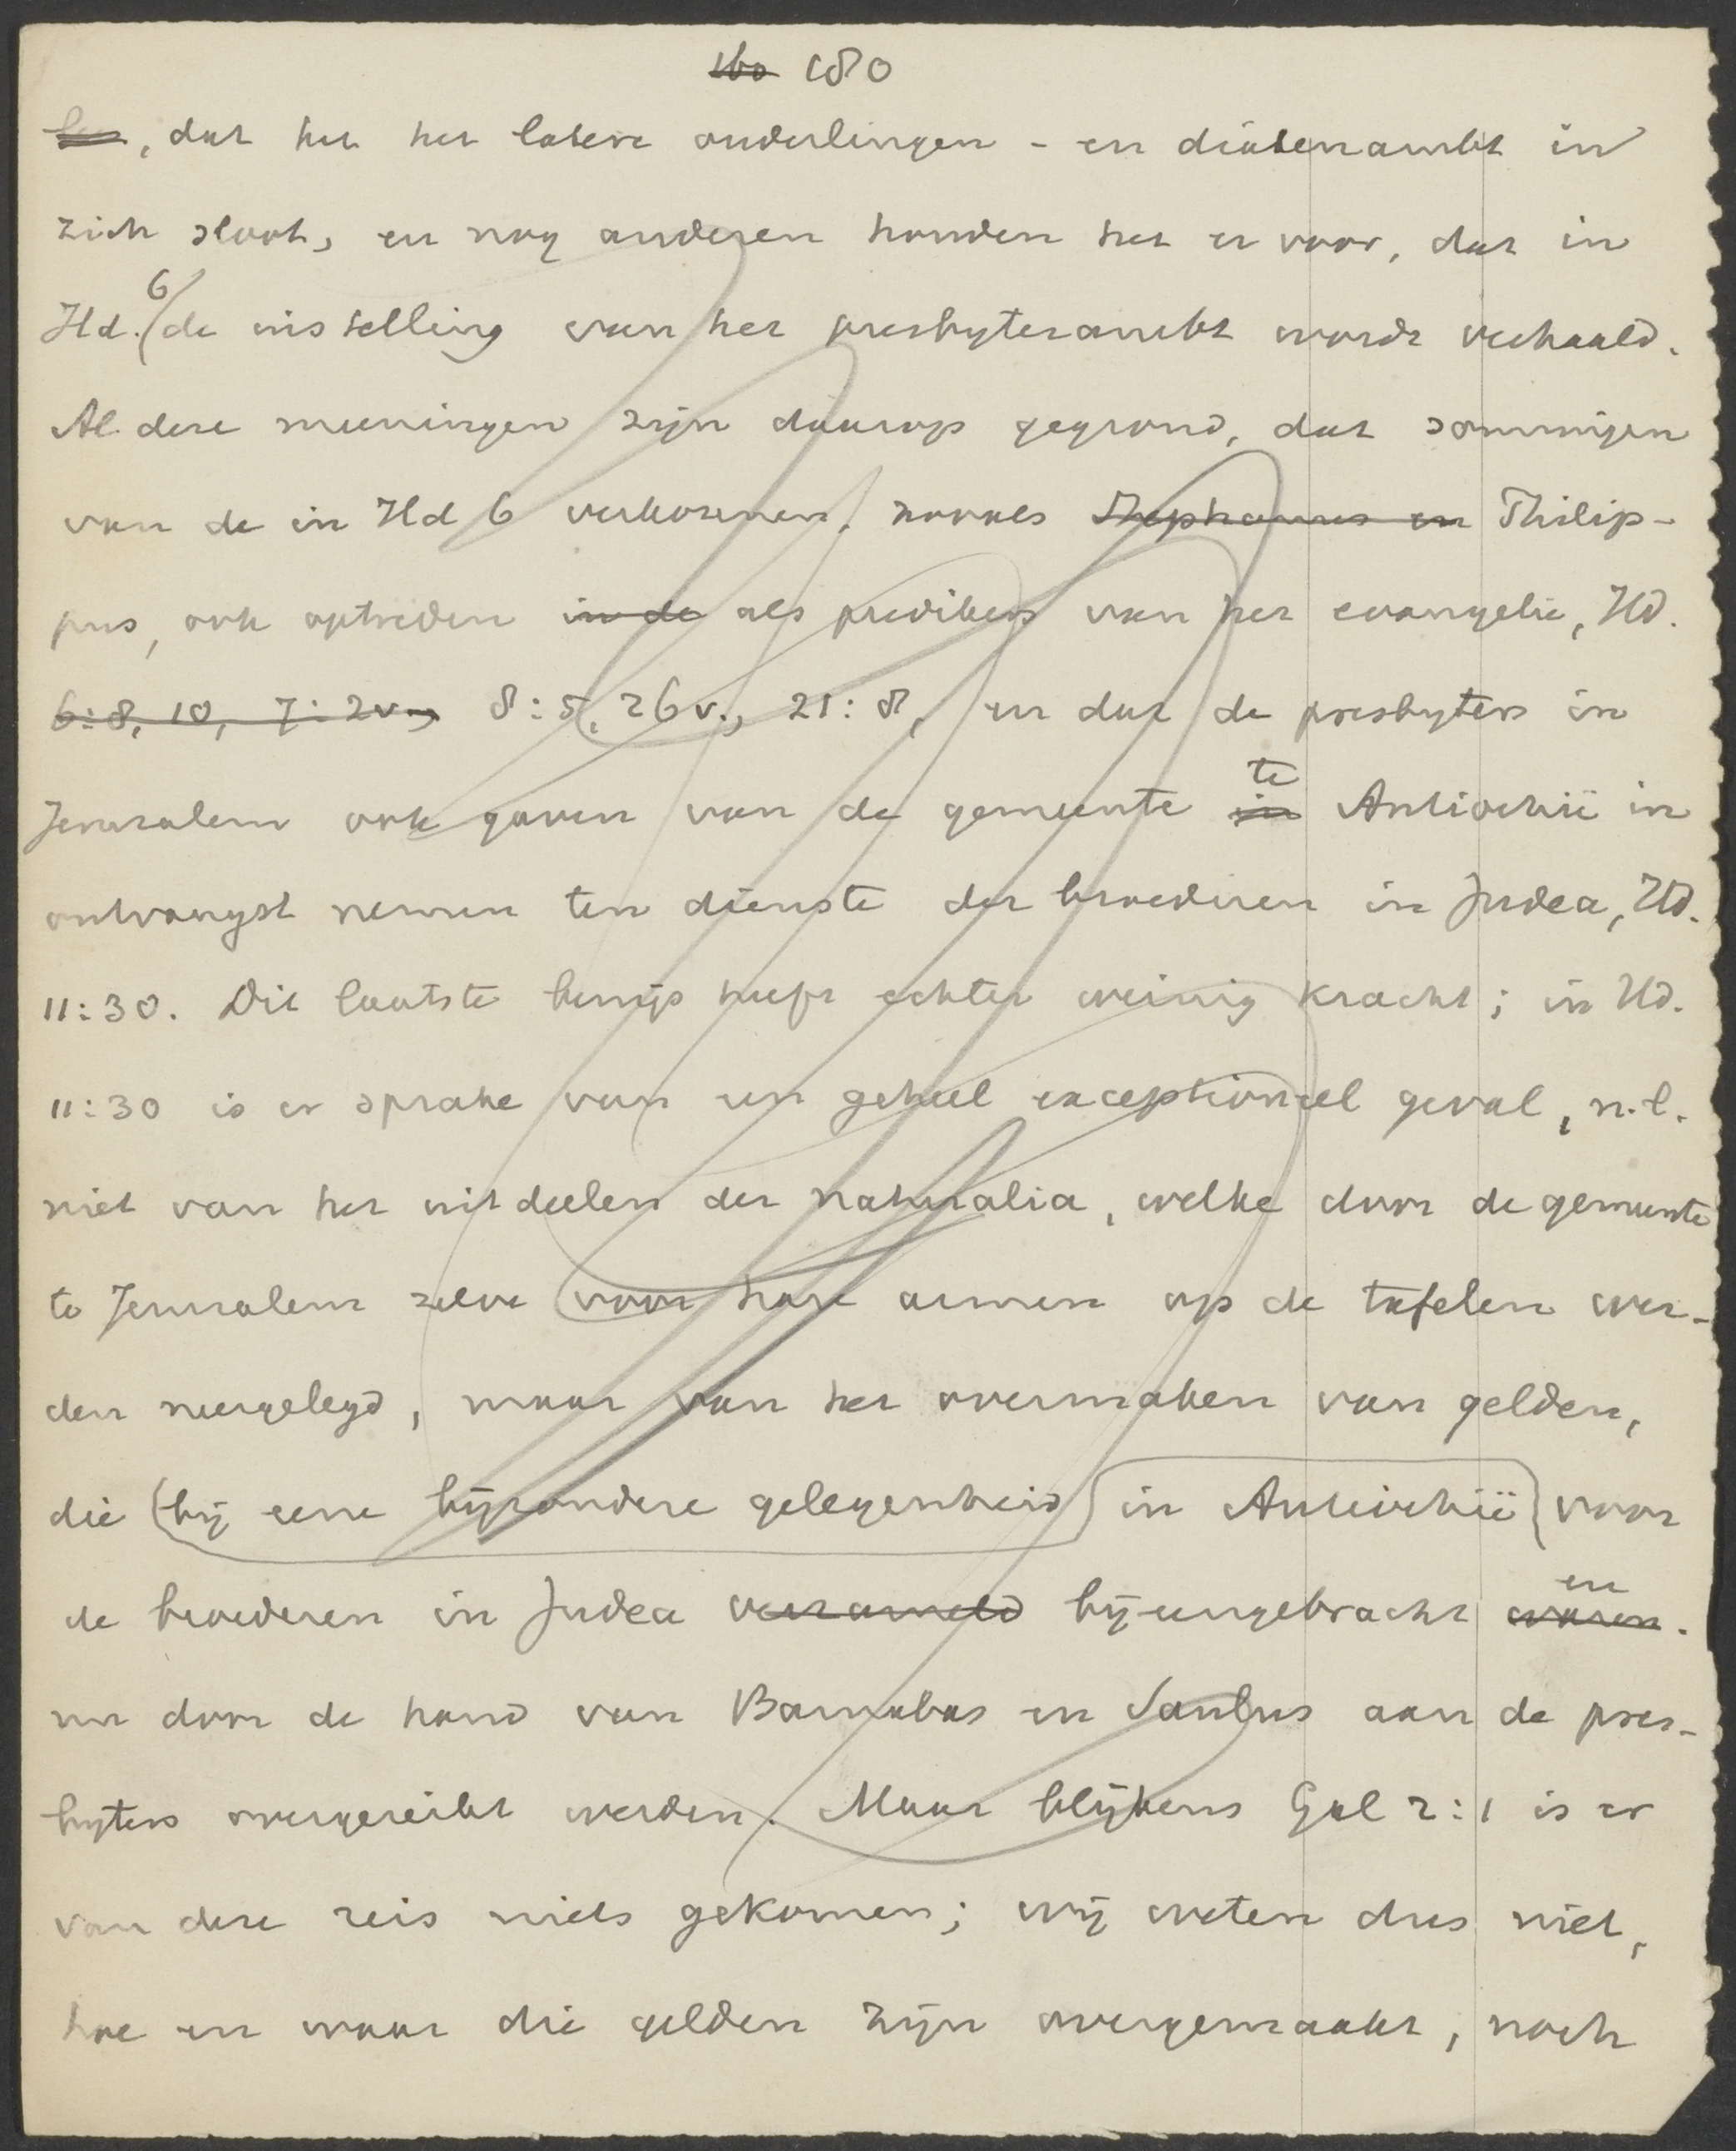 160 180
, dat het het latere ouderlingen- en diakenambt in
zich sloot, en nog anderen houden het er voor, dat in
Hd. 6 de instelling van het presbyterambt wordt verhaald.
Al deze meeningen zijn daarop gegrond, dat sommigen
van de in Hd 6 verkozenen, zooals Stephanus en Philip-
pus, ook optreden in de als predikers van het evangelie, Hd.
6:8, 10, 7:2v., 8:5, 26v., 21:8, en dat de presbyters in
Jeruzalem ook gaven van de gemeente in te Antiochië in
ontvangst nemen ten dienste der broederen in Judea, Hd.
11:30. Dit laatste bewijs heeft echter weinig kracht; in Hd.
11:30 is er sprake van een geheel exceptioneel geval, n.l.
niet van het uitdeelen der naturalia, welke door de gemeente
te Jeruzalem zelve voor hare armen op de tafelen wer-
den neergelegd, maar van het overmaken van gelden,
die (bij eene bijzondere gelegenheid) in Antiochië voor
de broederen in Judea verzameld bijeengebracht waren. en
nu door de hand van Barnabas en Saulus aan de pres-
byters overgereikt werden. Maar blijkens Gal 2:1 is er
van deze reis niets gekomen; wij weten dus niet,
hoe en waar die gelden zijn overgemaakt, noch